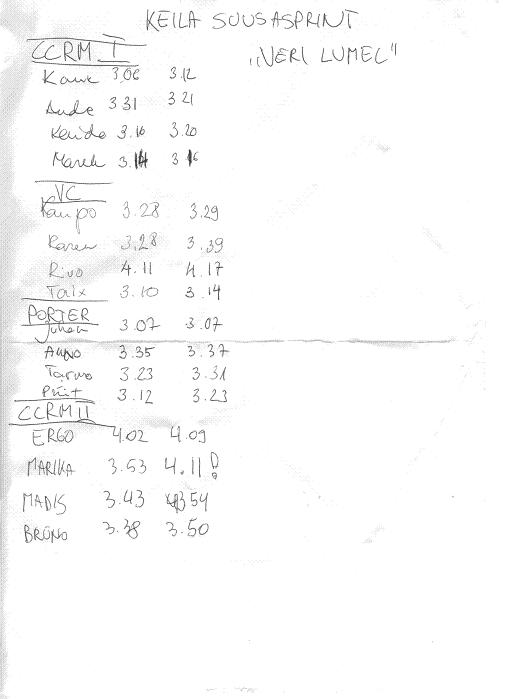 KEILA SUUSASPRINT
"VERI LUMEL"
CCRM I
Kaur 3.06 3.12
Aude 3.31 3.21
Kendo 3.16 3.20
Marek 3.14 3.16
VC
Kaupo 3.28 3.29
Raren 3.28 3.39
Rivo 4.11 4.17
Taix 3.10 3.14
PORTER
Juhan 3.07 3.07
AUNO 3.35 3.37
Tarmo 3.23 3.31
Priit 3.12 3.23
CCRM II
ERGO 4.02 4.09
MARIKA 3.53 4.11!
MADIS 3.43 3.54
BRUNO 3.38 3.50